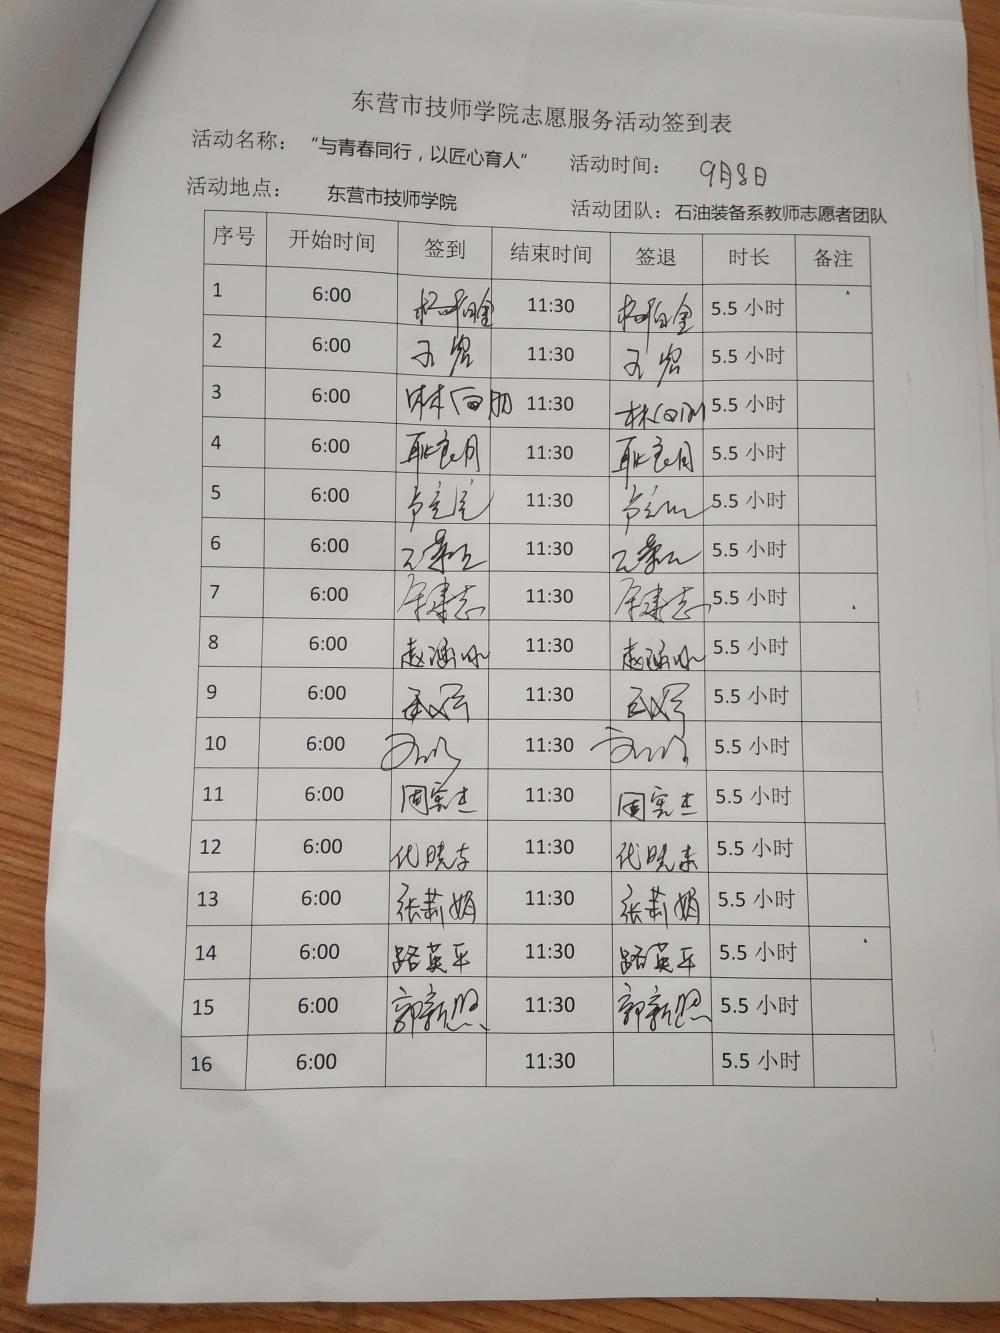 东营市技师学院志愿服务活动签到表
活动名称： “与青春同行，以匠心育人” 活动时间： 9月8日
活动地点： 东营市技师学院 活动团队：石油装备系教师志愿者团队
序号 开始时间 签到 结束时间 签退 时长 备注
1 6:00 11:30 5.5 小时
2 6:00 11:30 5.5 小时
3 6:00 11:30 5.5 小时
4 6:00 耿良月 11:30 耿良月 5.5 小时
5 6:00 11:30 5.5 小时
6 6:00 11:30 5.5 小时
7 6:00 11:30 5.5 小时
8 6:00 赵涵冰 11:30 赵涵冰 5.5 小时
9 6:00 11:30 5.5 小时
10 6:00 11:30 5.5 小时
11 6:00 周宪杰 11:30 周宪杰 5.5 小时
12 6:00 代晓东 11:30 代晓东 5.5 小时
13 6:00 张莉娟 11:30 张莉娟 5.5 小时
14 6:00 路英平 11:30 路英平 5.5 小时
15 6:00 郭新照 11:30 郭新照 5.5 小时
16 6:00 11:30 5.5 小时